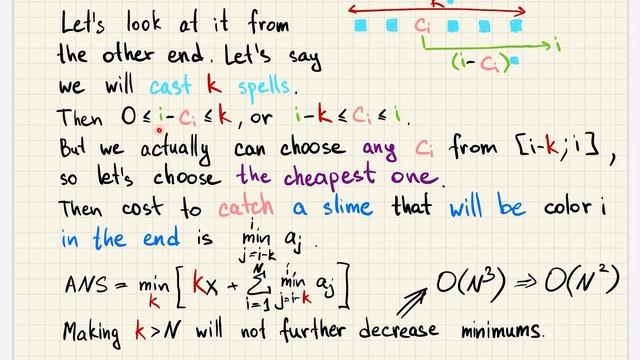 Let's look at it from
the other end. Let's say
we will cast k spells.
Then 0 ≤ i-Ci ≤ k, or i-k ≤ Ci ≤ i.
But we actually can choose any Ci from [i-k; i],
so let's choose the cheapest one.
Then cost to catch a slime that will be color i
in the end is min_{j=i-k}^{i} aj.
ANS = min_k [kx + Σ_{i=1}^{N} min_{j=i-k}^{i} aj]
O(N³) ⇒ O(N²)
Making k>N will not further decrease minimums.
Ci
i
(i-Ci)